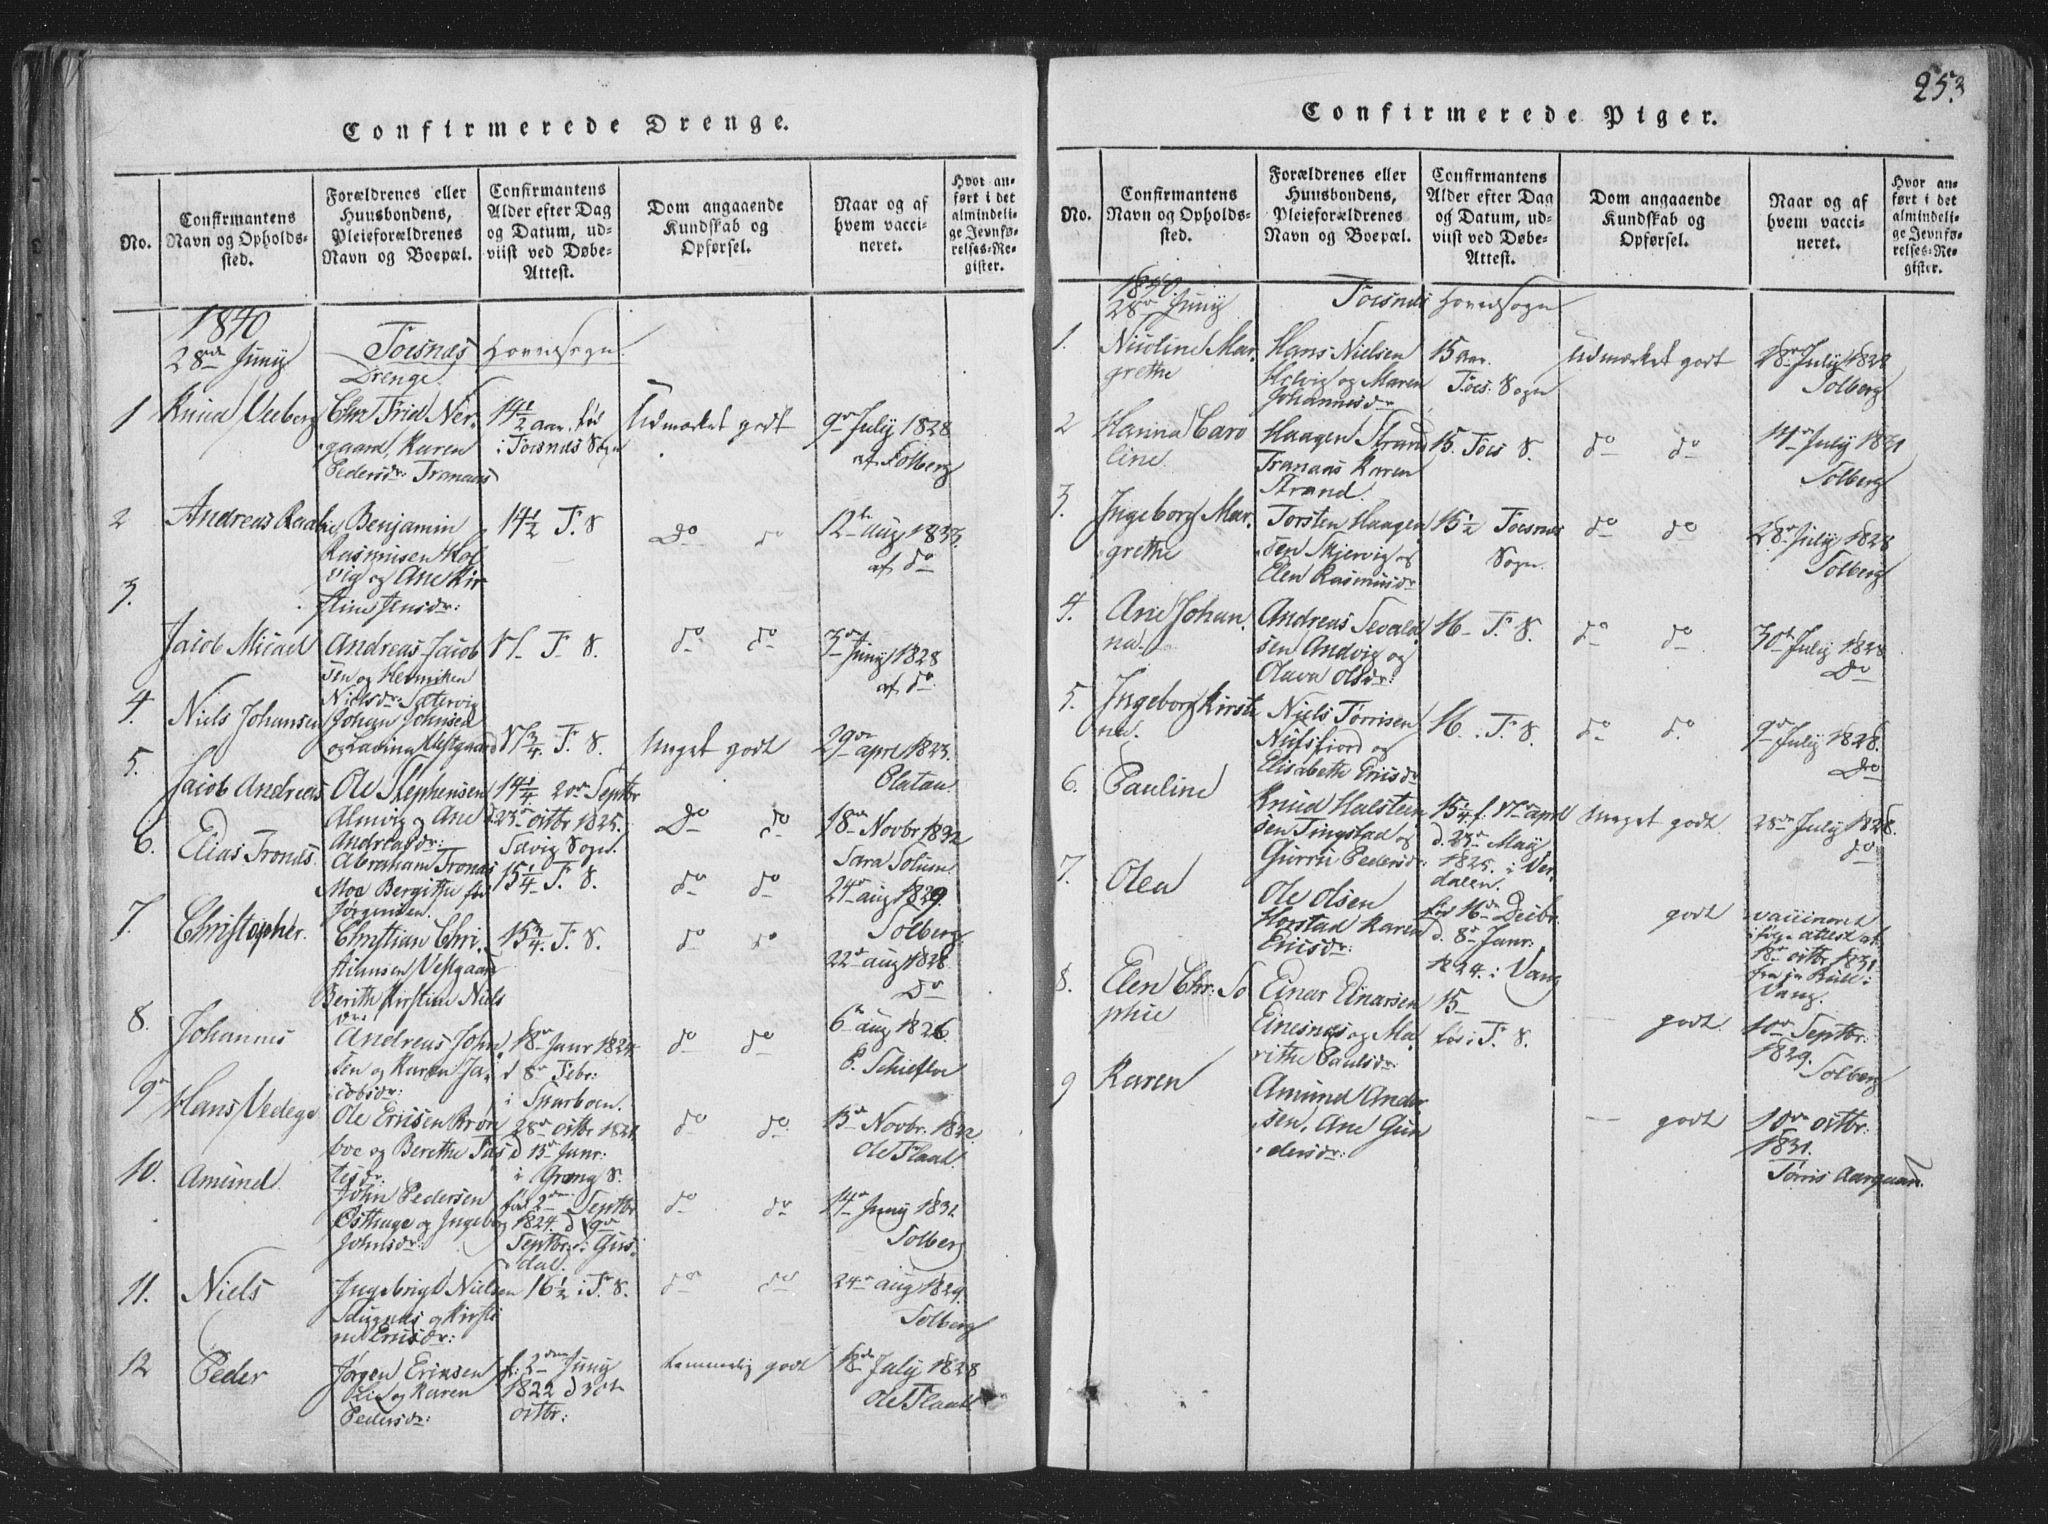 253
Confirmerede Drenge.
No.
Confirmantens
Navn og Opholds-
sted.
Forældrenes eller
Huusbondens,
Pleieforældrenes
Navn og Boepæl.
Confirmantens
Alder efter Dag
og Datum, ud-
viist ved Døbe-
Attest.
Dom angaaende
Kundskab og
Opførsel.
Naar og af
hvem vacci-
neret.
Hvor an-
ført i det
almindeli-
ge Jevnfø-
relses-Re-
gister.
1840
28de Juny
Foesnæs Hovedsogn
Drenge.
1
Knud Veeberg
Chr Frid Ner-
gaard, Karen
Pedersdr: Tranaas
14½ aar. fød
i Foesnæs Sogn
Udmærket godt
9de July 1828
af Solberg
2
Andreas
Benjamin
Rasmusen Hol
vig og Ane Kir
stine Jensdr:
14½ F. S
Do do
12te aug 1833.
af do
3.
Jacob Micael
Andreas Jacob
sen og
Nielsdr: Sætervig
15 F. S.
do do
3de Juny 1828
af do
4.
Niels Johansen
Johan Johnsen
og Vestgaard
15¾ F. S.
Meget godt
29de apr 1823.
5.
Jacob Andreas
Ole Stephensen
Almvig og Ane
Andreasdr:
14¼ 20de Septbr
d 23de octbr 1825.
Sogn.
Do do
18de Novbr 1832
Sara Solum
6.
Elias Tronds.
Abraham Tronds
Moe Bergithe
Jørgensen.
15¼ F. S.
do do
24de aug 1829.
Solberg
7.
Christopher.
Christian Chri
stiansen Vestgaard
Berith Kirstine Niels
dr:
15¾. F. S.
do do
22de aug 1828
Do
8.
Johannes
Andreas John
sen og Karen Ja-
cobsdr:
18de Janr 1824.
d 8de Febr:
i Sparboen.
do do
6te aug 1826
P. Schieflo
9
Hans Vedege
Ole Ericsen
og Berethe
28de octbr 1824.
d 13de Janr:
i Grong S.
do do
13de Novbr. 1832.
Ole Flaat.
10.
Amund
John Pedersen
og Ingeborg
Johnsdr:
fød 2den Septbr
1824. d 19de
Septbr: i
do do
14de Juny 1832
Solberg
11.
Niels
Ingebrigt Nielsen
og Kirsti
ne Ericsdr:
16½ i F. S.
do do
24de aug 1829.
Solberg
12
Peder
Jørgen Ericsen
Lie og Karen
Pedersdr:
f: 2den Juny
1822 d 30te
octbr:
temmelig godt
18de July 1828
Ole Flaat.
Confirmerede Piger.
No.
Confirmantens
Navn og Opholds-
sted.
Forældrenes eller
Huusbondens,
Pleieforældrenes
Navn og Boepæl.
Confirmantens
Alder efter Dag
og Datum, ud-
viist ved Døbe-
Attest.
Dom angaaende
Kundskab og
Opførsel.
Naar og af
hvem vacci-
neret.
Hvor an-
ført i det
almindeli-
ge Jevnfø-
relses-Re-
gister.
1840.
28de Juny
Foesnæs Hovedsogn
1.
Nicoline Mar-
grethe
Hans Nielsen
Holvig og Maren
Johannesdr
15 aar.
Foes: Sogn
Udmærket godt
18de July 1828
Solberg
2
Hanna Caro
line
Haagen Strand
Tranaas Karen
Strand.
15. Foes S.
do do
14de July 1831
Solberg
3.
Ingeborg Mar-
grethe
Torsten Haagen
sen Skjervig og
Elen Rasmusdr
15½ Foesnæs
Sogn.
do do
28de July 1828
Solberg
4.
Ane Johan-
na
Andreas Sevald
sen Andvig og
Olava Olsdr:
16- F. S.
do do
30te July 1828
Do
5.
Ingeborg Kirsti
ne.
Niels Torrisen
Nufsfjord og
Elisabethe Ericsdr
16. F. S.
do do
9de July 1828.
Do
6.
Pauline
Knud Halstein
sen Tingstad og
Gurru Pedersdr:
15¼ f. 17de april
d. 23de May
1825. i Ver-
dalen.
Meget godt
28de July 1828.
do
7.
Olea
Ole Olsen
Horstad Karen
Ericsdr:
fød 16de Decbr.
d. 8de Janr:
1824. i Vang
godt
vaccineret
ifølge attest af
18de octbr 1831
fra
Vang.
8.
Elen Chr: So
phie
Einar Einarsen
Einesnæs og Ma
rithe Paulsdr:
15-
fød i F. S.
godt.
10de Septbr:
1829.
Solberg
9
Karen
Amund Ander
sen, Ane Gun
dersdr:
godt
10de octbr:
1831.
Torris Aargaan.